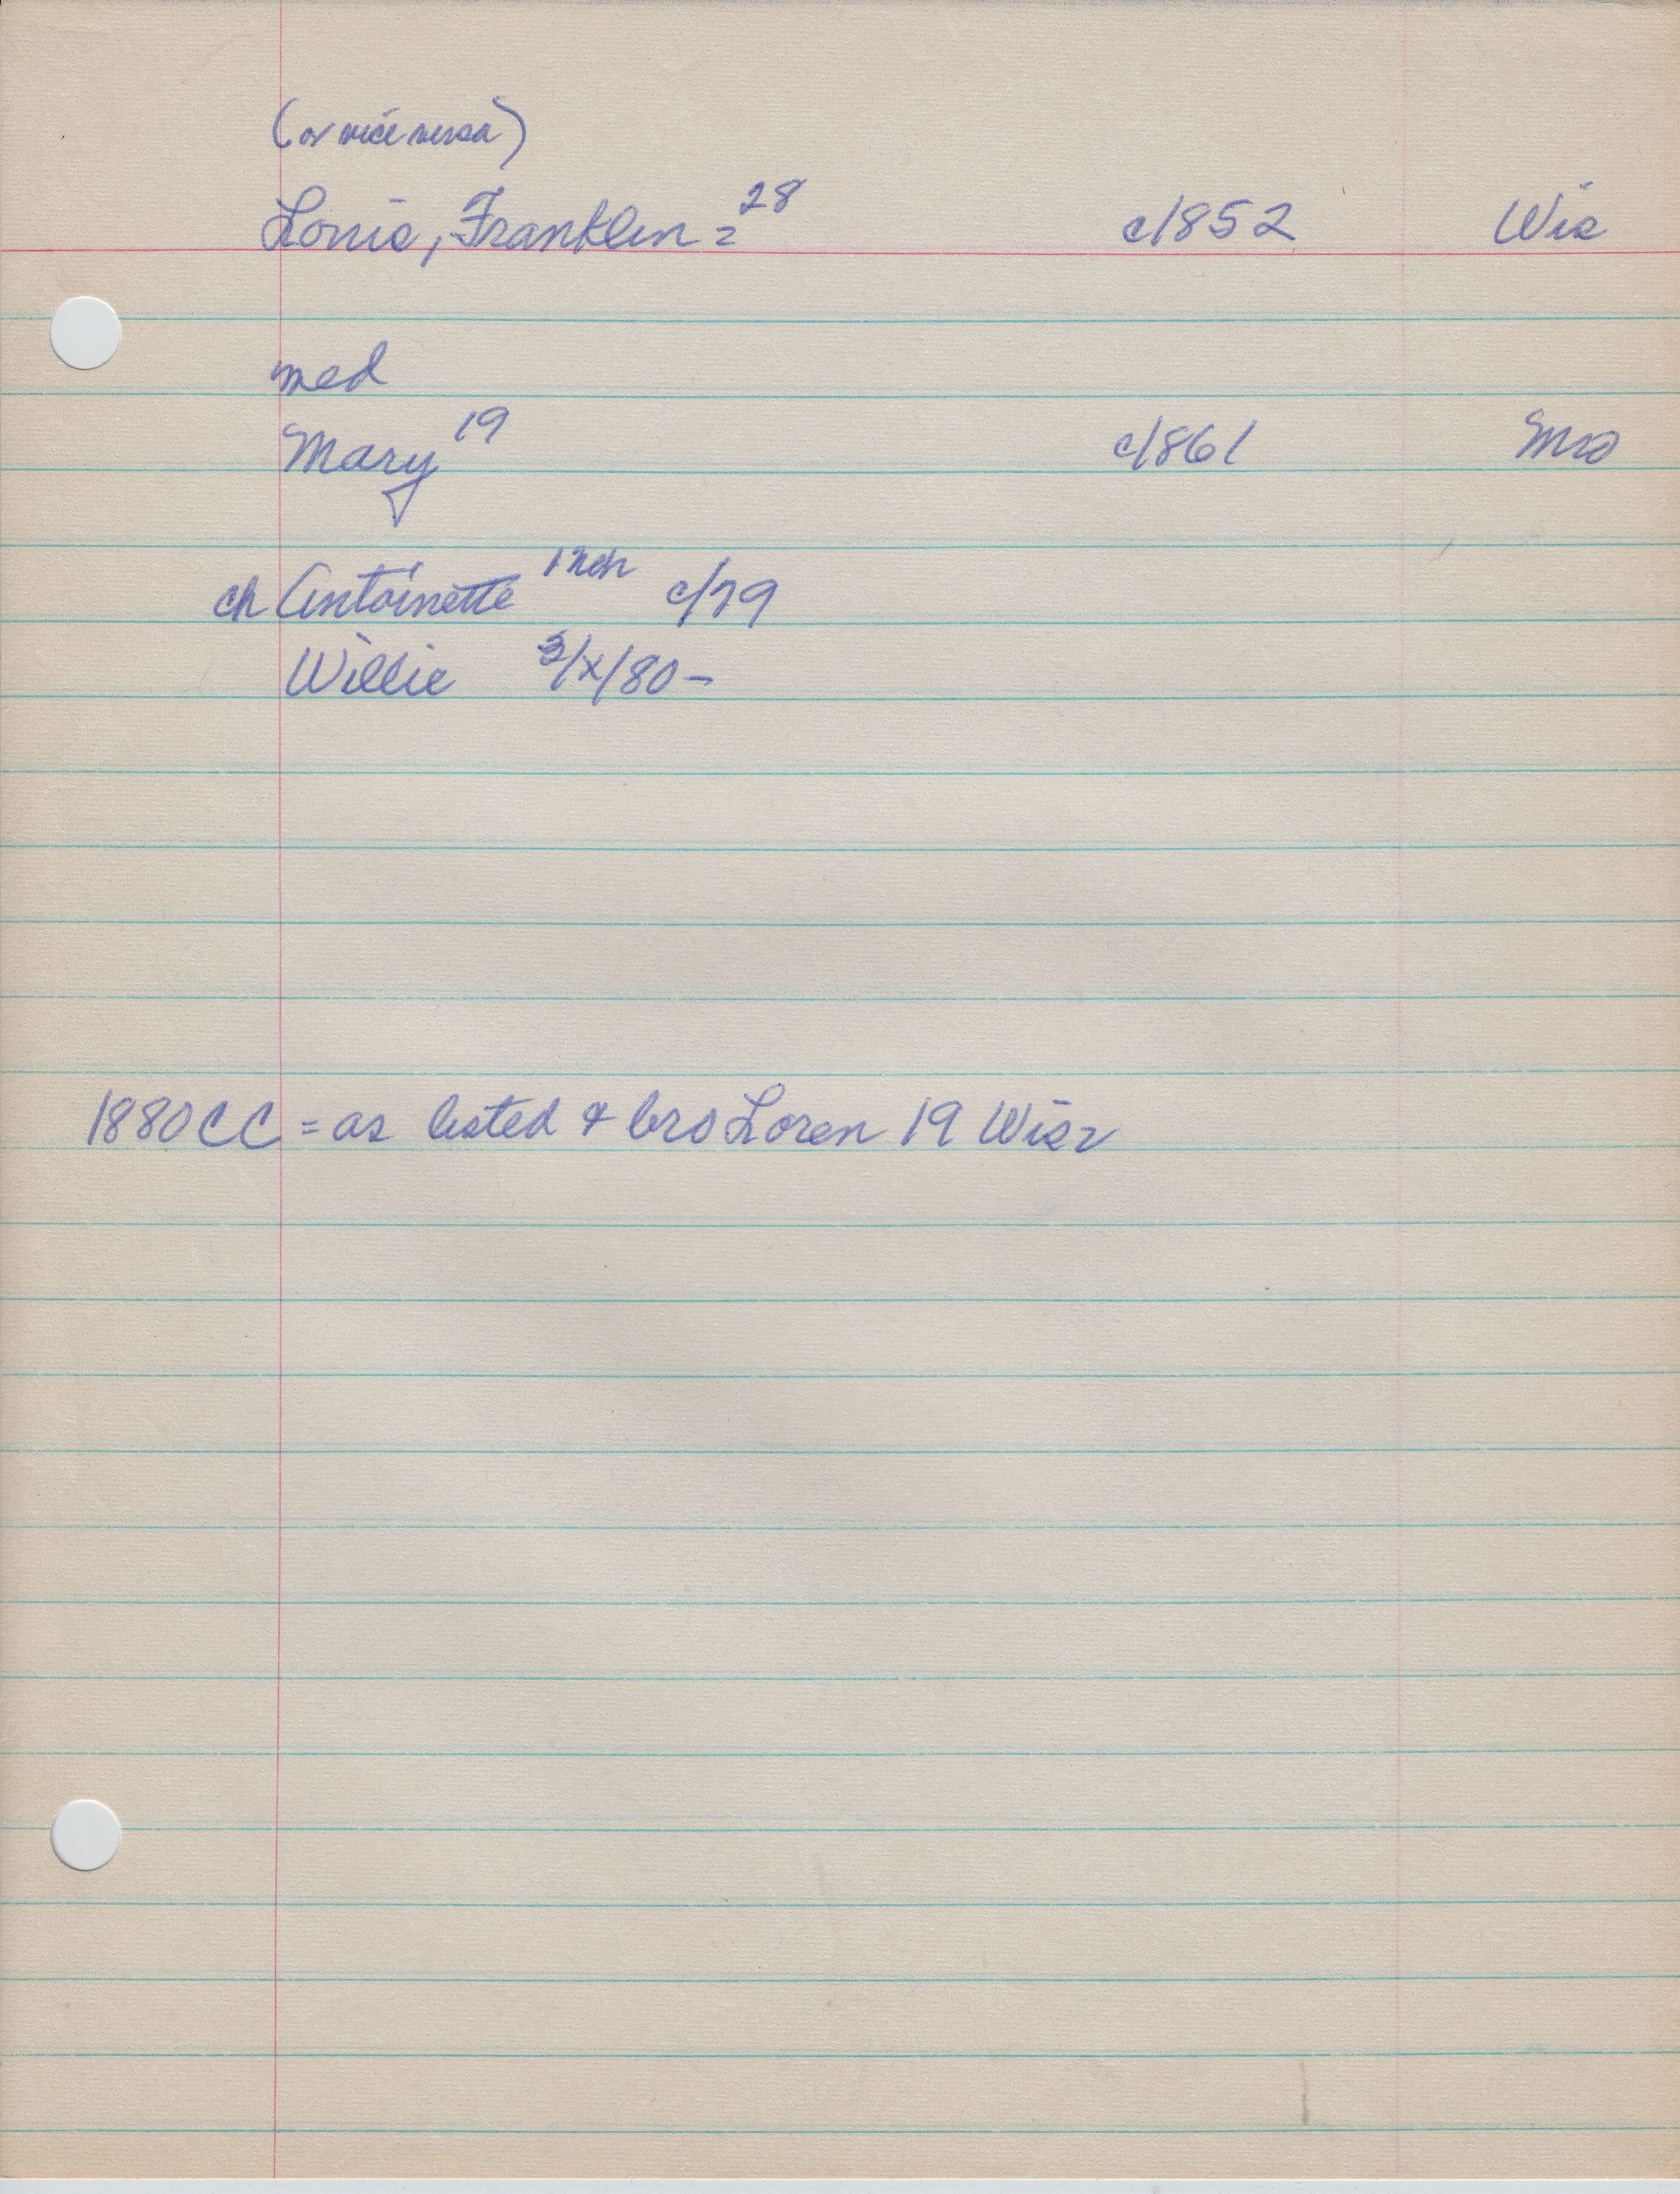 (or vice versa)
Louis, Franklin = 28 c/1852 Wis
med
Mary 19 c/1861 Mo
ch Antoinette 1 c/79
Willie 3/x/80-
1880 CC = as listed & bro Loren 19 Wis